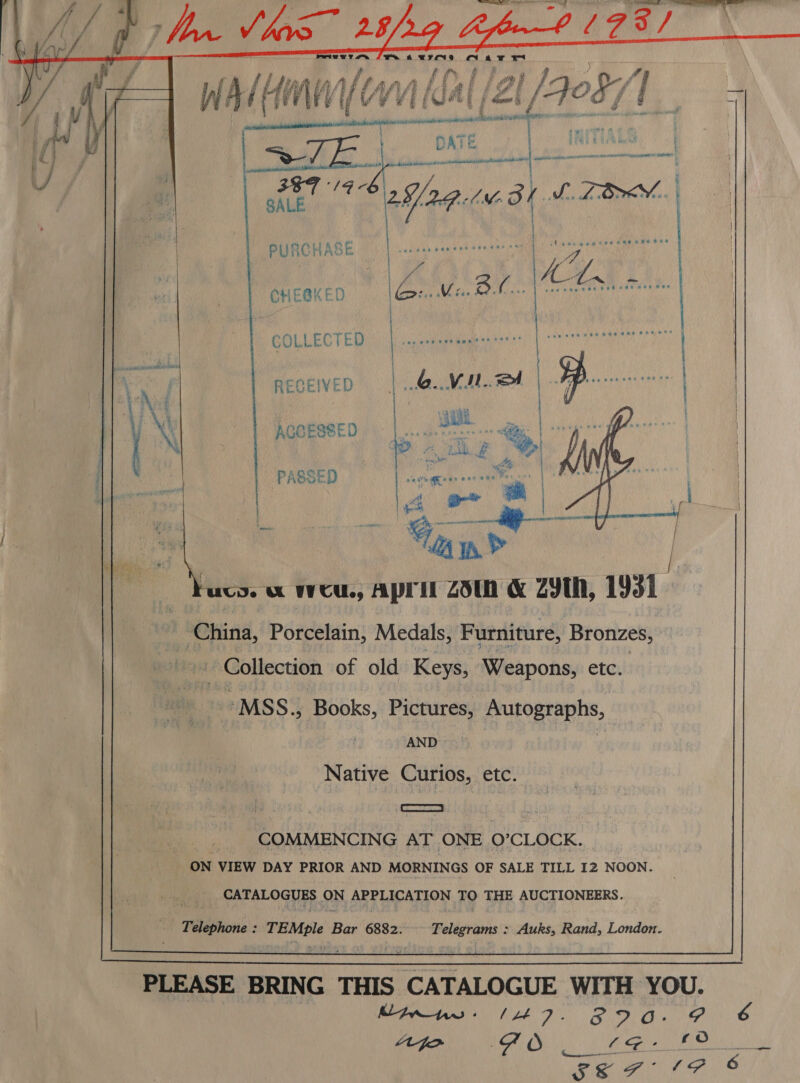 28/29 April 1931
DATE INITIALS
SALE 389 19 6 28/29.IV.31
PURCHASE
CHECKED 6.V.31
COLLECTED
RECEIVED 6.VII.31
ACCESSED
PASSED
April 28th & 29th, 1931
China, Porcelain, Medals, Furniture, Bronzes,
Collection of old Keys, Weapons, etc.
MSS., Books, Pictures, Autographs,
AND
Native Curios, etc.
COMMENCING AT ONE O'CLOCK.
ON VIEW DAY PRIOR AND MORNINGS OF SALE TILL 12 NOON.
CATALOGUES ON APPLICATION TO THE AUCTIONEERS.
Telephone : TEMple Bar 6882. Telegrams : Auks, Rand, London.
PLEASE BRING THIS CATALOGUE WITH YOU.
147. 370. 9 6
90 19. 10
389 19 6